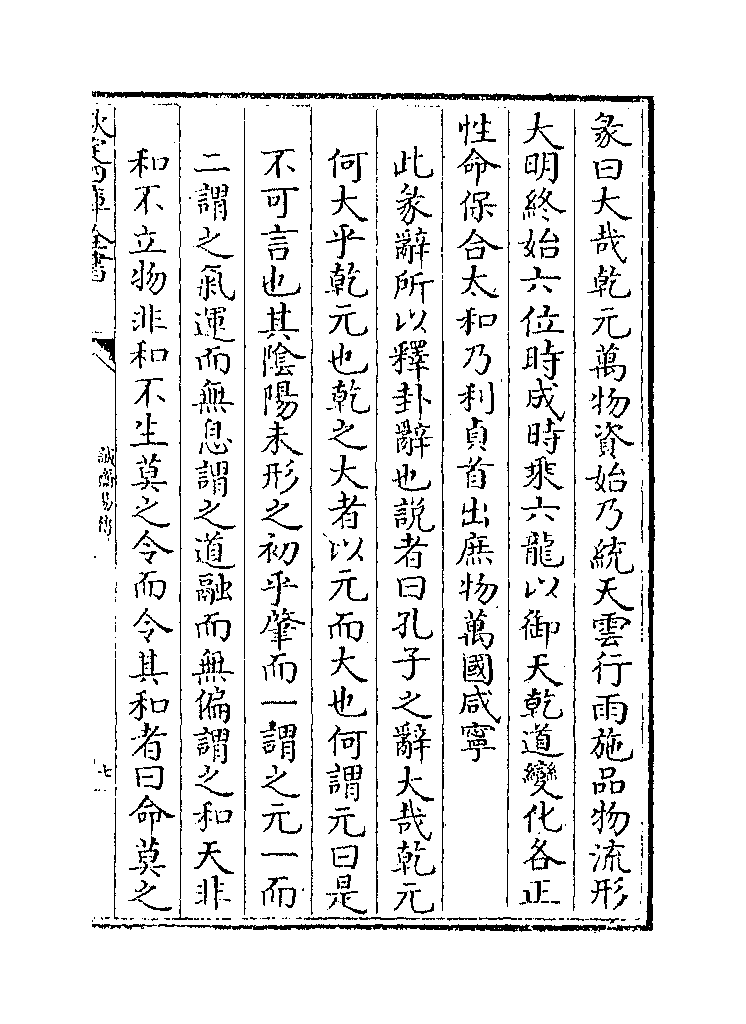 彖曰大哉乾元萬物資始乃統天雲行雨施品物流形
大明終始六位時成時乗六龍以御天乾道變化各正
性命保合太和乃利貞首出庶物萬國咸寧
此彖辭所以釋卦辭也説者曰孔子之辭大哉乾元
何大乎乾元也乾之大者以元而大也何謂元曰是
不可言也其隂陽未形之初乎肇而一謂之元一而
二謂之氣運而無息謂之道融而無偏謂之和天非
和不立物非和不生莫之令而令其和者曰命莫之
欽定四庫全書
誠齋易傳
七